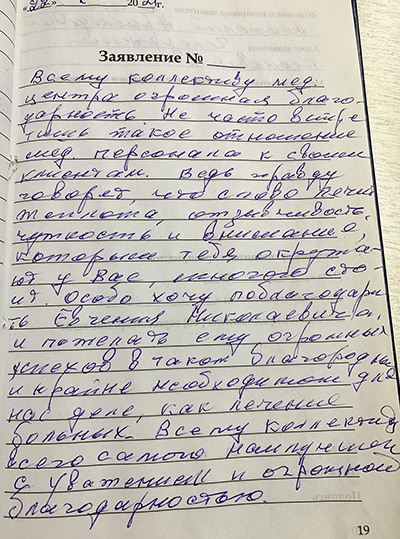 20
Заявление №
Всему коллективу мед.
центра огромная благо-
дарность. Не часто встре
тишь такое отношение
мед. персонала к своим
клиентам. Ведь правду
говорят, что слово лечит
теплота, отзывчивость,
чуткость и внимание,
которым тебя окружа-
ют у Вас, многого сто-
ит. Особо хочу поблагодари
ть Евгения Николаевича,
и пожелать ему огромных
успехов в таком благородном
и крайне необходимом для
нас деле, как лечение
больных. Всему коллективу
всего самого наилучшего
С уважением и огромной
благодарностью.
19